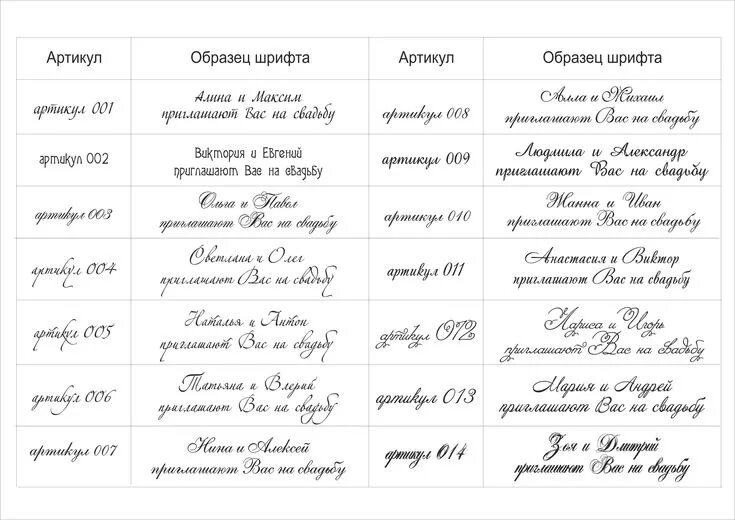 Артикул
Образец шрифта
Артикул
Образец шрифта
артикул 001
Алина и Максим
приглашают Вас на свадьбу
артикул 008
Алла и Михаил
приглашают Вас на свадьбу
артикул 002
Виктория и Евгений
приглашают Вас на свадьбу
артикул 009
Людмила и Александр
приглашают Вас на свадьбу
артикул 003
Ольга и Павел
приглашают Вас на свадьбу
артикул 010
Жанна и Иван
приглашают Вас на свадьбу
артикул 004
Светлана и Олег
приглашают Вас на свадьбу
артикул 011
Анастасия и Виктор
приглашают Вас на свадьбу
артикул 005
Наталья и Антон
приглашают Вас на свадьбу
артикул 012
Лариса и Игорь
приглашают Вас на свадьбу
артикул 006
Татьяна и Влерий
приглашают Вас на свадьбу
артикул 013
Мария и Андрей
приглашают Вас на свадьбу
артикул 007
Нина и Алексей
приглашают Вас на свадьбу
артикул 014
Зоя и Дмитрий
приглашают Вас на свадьбу